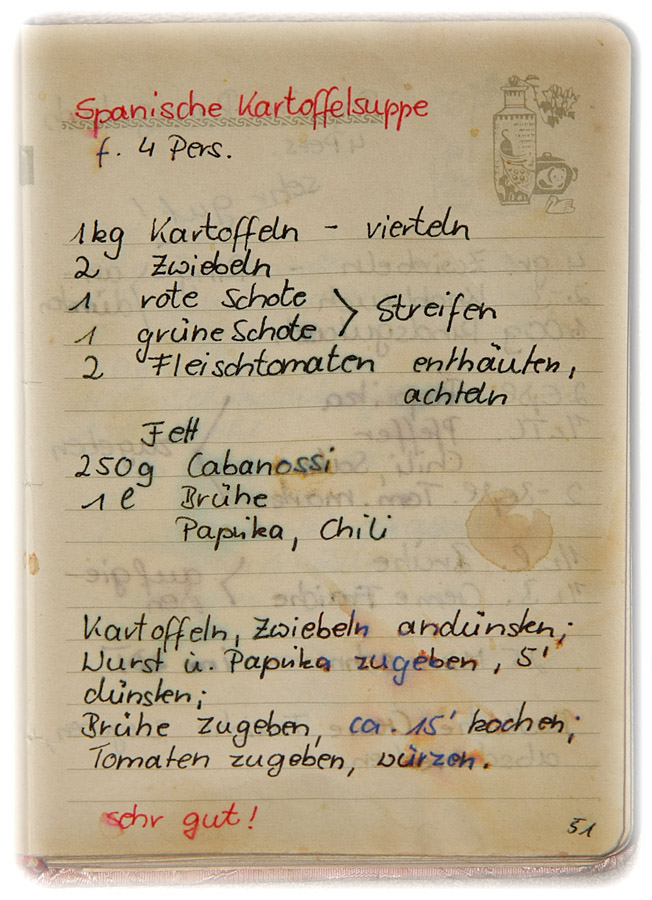 Spanische Kartoffelsuppe
f. 4 Pers.
1kg Kartoffeln - vierteln
2 Zwiebeln
1 rote Schote
1 grüne Schote > Streifen
2 Fleischtomaten enthäuten,
achteln
Fett
250g Cabanossi
1 l Brühe
Paprika, Chili
Kartoffeln, Zwiebeln andünsten;
Wurst u. Paprika zugeben, 5'
dünsten;
Brühe zugeben, ca. 15' kochen;
Tomaten zugeben, würzen.
sehr gut!
51